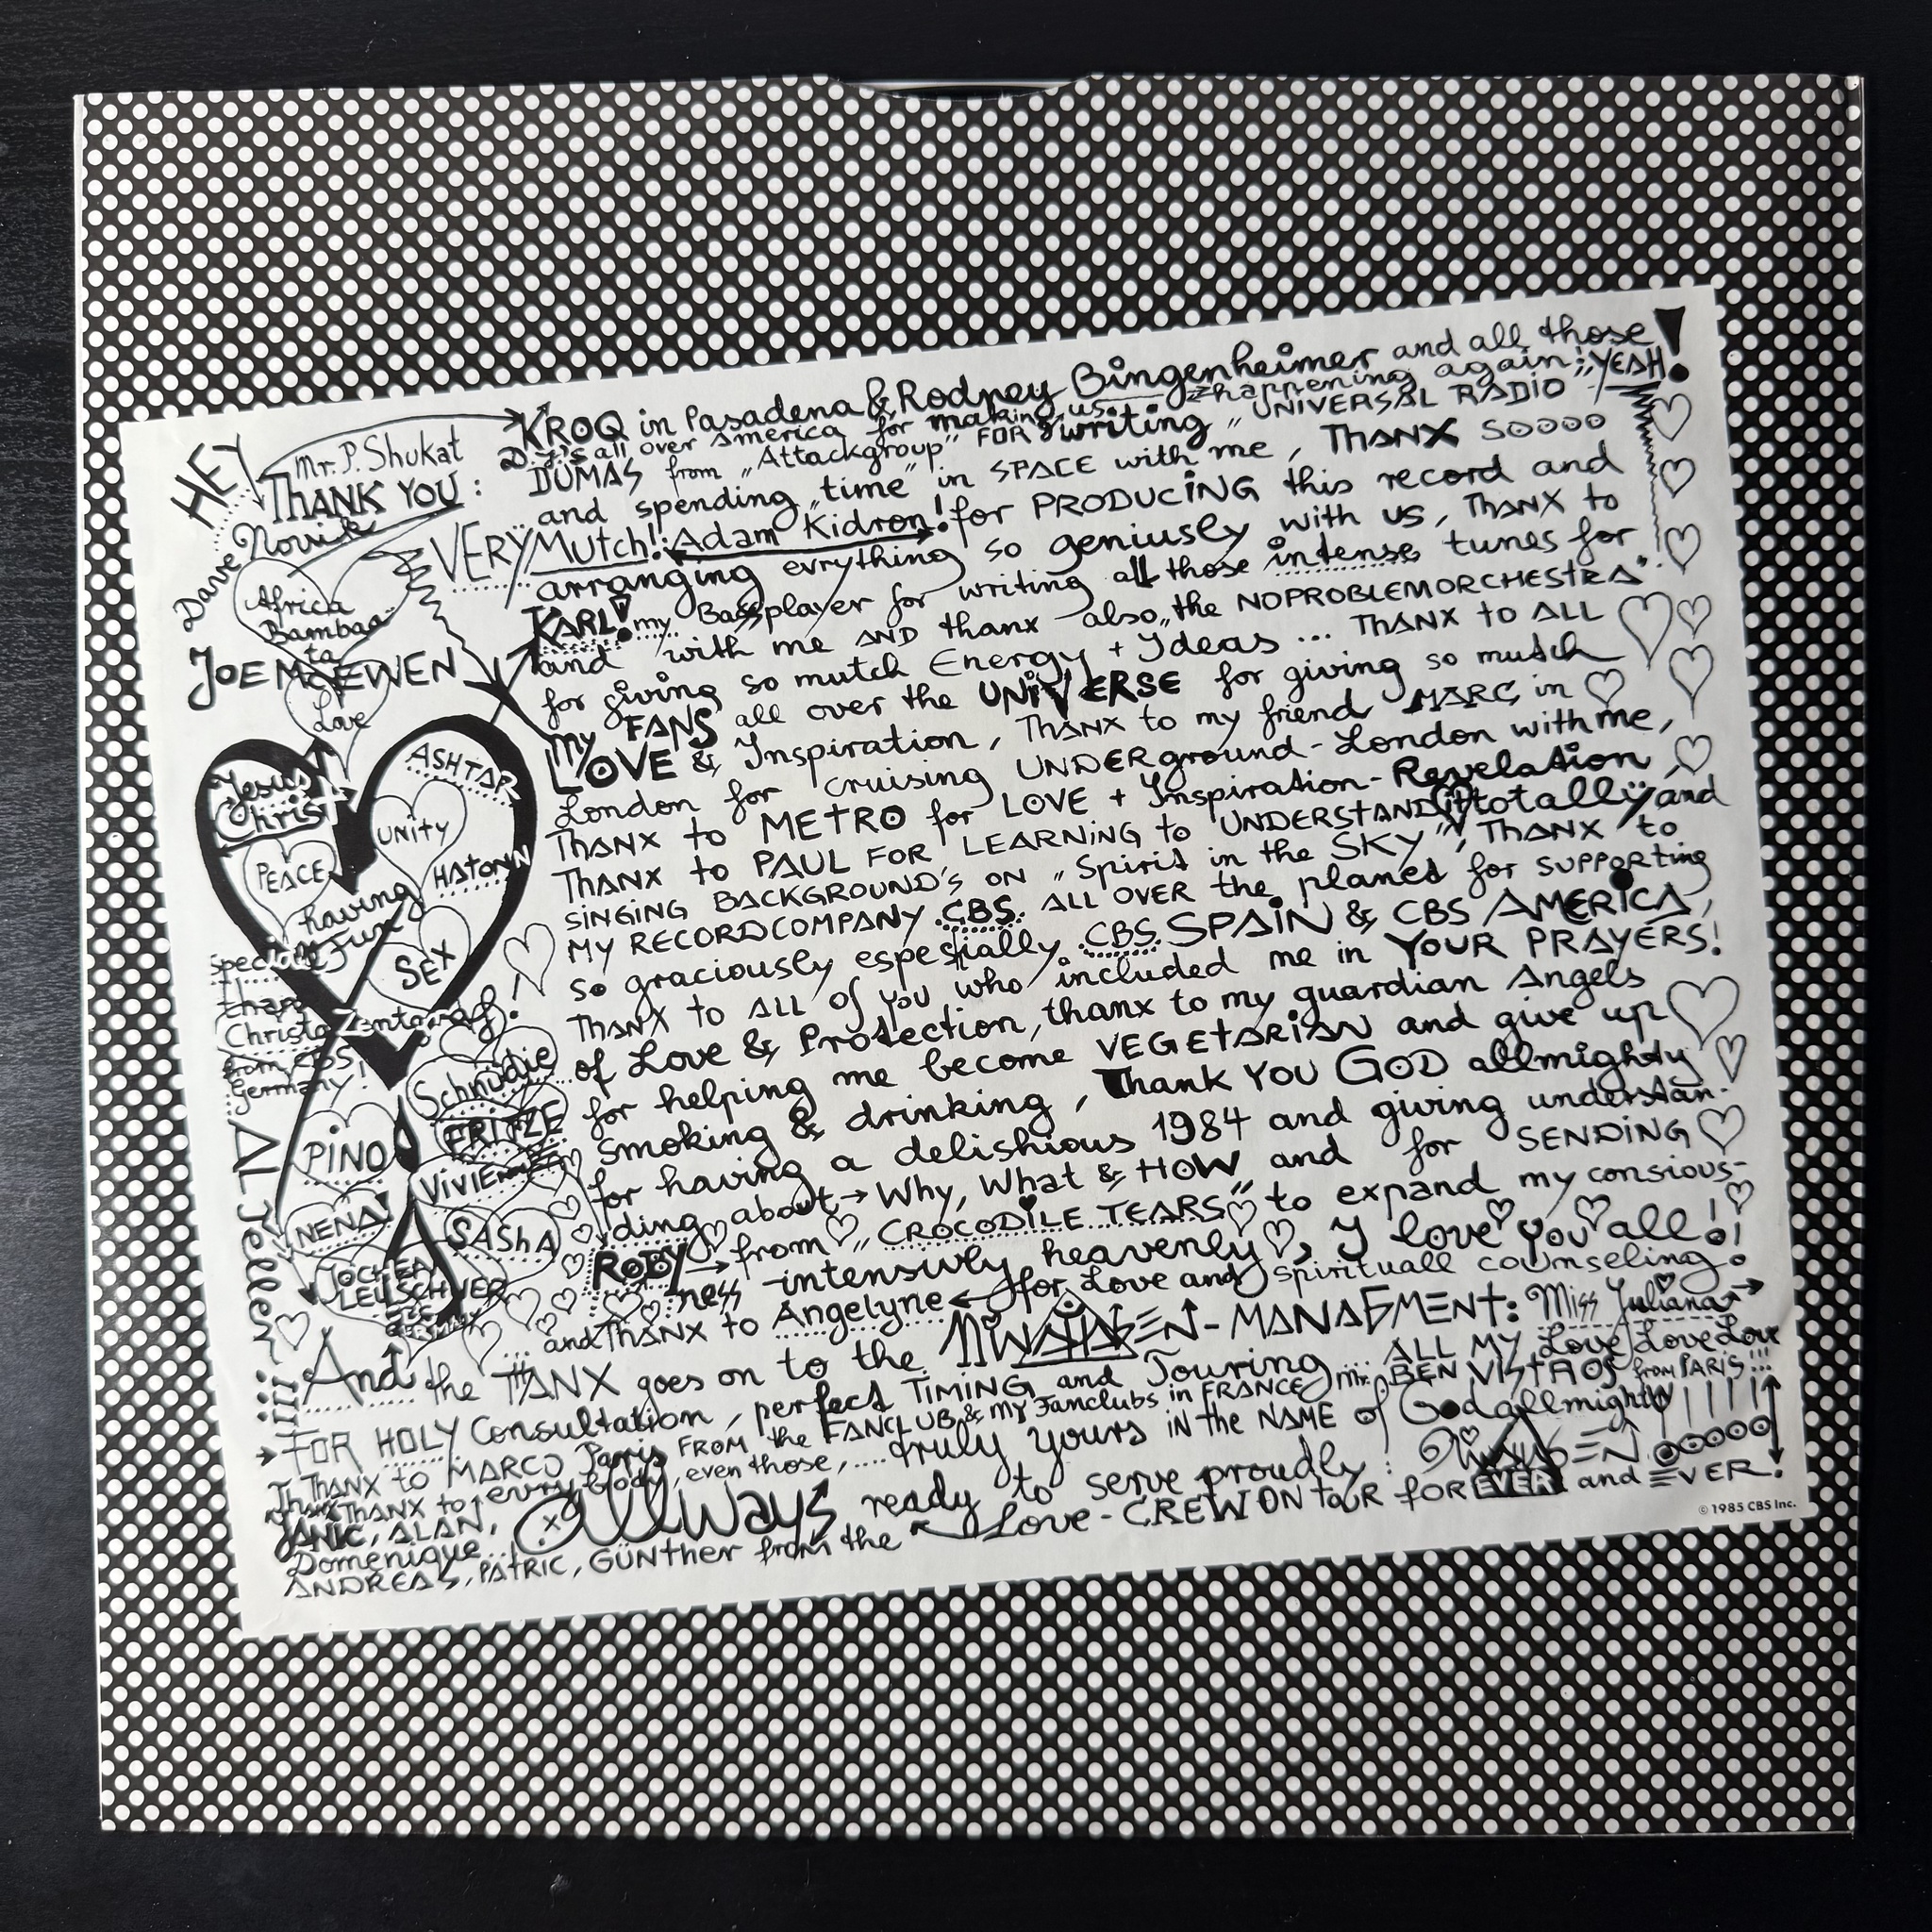 HEY
Mr. P. Shukat
THANK YOU:
Dave Novik
Africa
Bambaa
ta
JOE McEWEN
Love
KROQ in Pasadena & Rodney Bingenheimer and all those
D.J.'s all over America for making us happening again!; YEAH!
DÜMAS from „Attackgroup" FOR writing „UNIVERSAL RADIO"
and spending „time" in SPACE with me, THANX soooo
VERY Mutch!: Adam Kidron! for PRODUCING this record and
arranging evrything so geniusly with us, THANX to
KARL! my Bassplayer for writing all those intense tunes for
and with me AND thanx also „the NOPROBLEMORCHESTRA"
for giving so mutch Energy + Ideas ... THANX to ALL
my FANS all over the UNIVERSE for giving so mutch
LOVE & Inspiration, THANX to my friend MARC in
London for cruising UNDERground-London with me,
THANX to METRO for LOVE + Inspiration-Revelation
THANX to PAUL FOR LEARNING to UNDERSTAND it totally and
SINGING BACKGROUND'S ON „Spirit in the SKY", THANX to
MY RECORDCOMPANY CBS ALL OVER the planet for supporting
so graciously especially CBS SPAIN & CBS AMERICA,
THANX to ALL of you who included me in YOUR PRAYERS!
of Love & Protection, thanx to my guardian Angels
for helping me become VEGETARIAN and give up
smoking & drinking, Thank YOU GOD allmighty
for having a delishious 1984 and giving understan-
ding about → Why, What & HOW and for SENDING
ROBY → from „CROCODILE TEARS" to expand my consious-
ness intensivly heavenly, I love you all!
... and THANX to Angelyne ← for Love and spirituall counseling!
Jesus
Christ
ASHTAR
UNITY
PEACE
HATONN
having
Fun
SEX
special
thanx
Christa Zentgraf!
from CBS
Germany!
Schnudie
PINO
FRITZE
VIVIENNE
NENA!
SASHA
JOCHEN
LEUSCHNER
CBS
GERMANY
AL Teller!!!
And the THANX goes on to the NINA HAGEN-MANAGMENT: Miss Yuliana
→ FOR HOLY Consultation, perfect TIMING and Touring ... ALL MY Love Love Love
THANX to MARCO Parris FROM the FANCLUB & my Fanclubs in FRANCE, Mr. BEN VISTROS from PARIS!!!
THANX to everybody, even those, .... truly yours IN the NAME of God allmighty
JANIC, ALAN, allways ready to serve proudly: NINA HAGEN
Domenique...
ANDREAS, PATRIC, GÜNther from the Love-CREW ON toUR FOR EVER and EVER!
© 1985 CBS Inc.